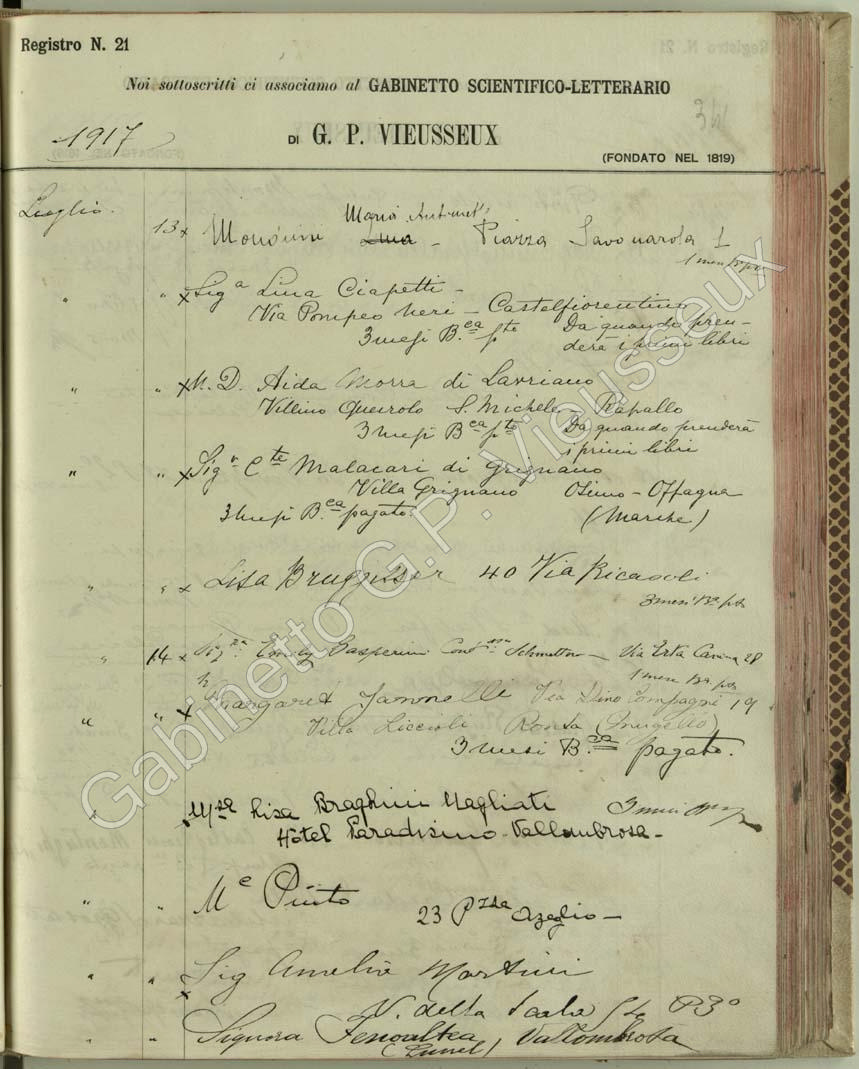 Registro N. 21
Noi sottoscritti ci associamo al GABINETTO SCIENTIFICO-LETTERARIO
341
1917
DI G. P. VIEUSSEUX
(FONDATO NEL 1819)
Luglio.
Maria
13 x Lina - Piazza Savonarola 1
1 mese
" " x Sig.a Lina Ciapetti -
Via Pompeo Neri - Castelfiorentino
3 mesi B.ca pto Da quando pren-
derà i primi libri
" " x N. D. Aida Morra di Lavriano
Villino Queirolo S. Michele - Rapallo
3 mesi B.ca pto Da quando prenderà
i primi libri
" " x Sig.r Cte Malacari di Grignano
Villa Grignano Osimo - Offagna
3 mesi B.ca pagato. (Marche)
" " x Lisa Bruggisser 40 Via Ricasoli
3 mesi
" 14 x Emily Gasperini Via Erta Canina 28
1 mese
" " x Margaret Jannelli Via Dino Compagni 19
Villa Liccioli Ronta (Mugello)
3 mesi B.ca pagato.
" x Lisa Braghini Nagliati 3 mesi
Hôtel Paradisino - Vallombrosa -
" " Me Pinto
23 Pzza Azeglio -
" " x Sig Amelia Martini
V. della Scala P3o
Signora Fenoaltea Vallombrosa
Gabinetto G.P. Vieusseux